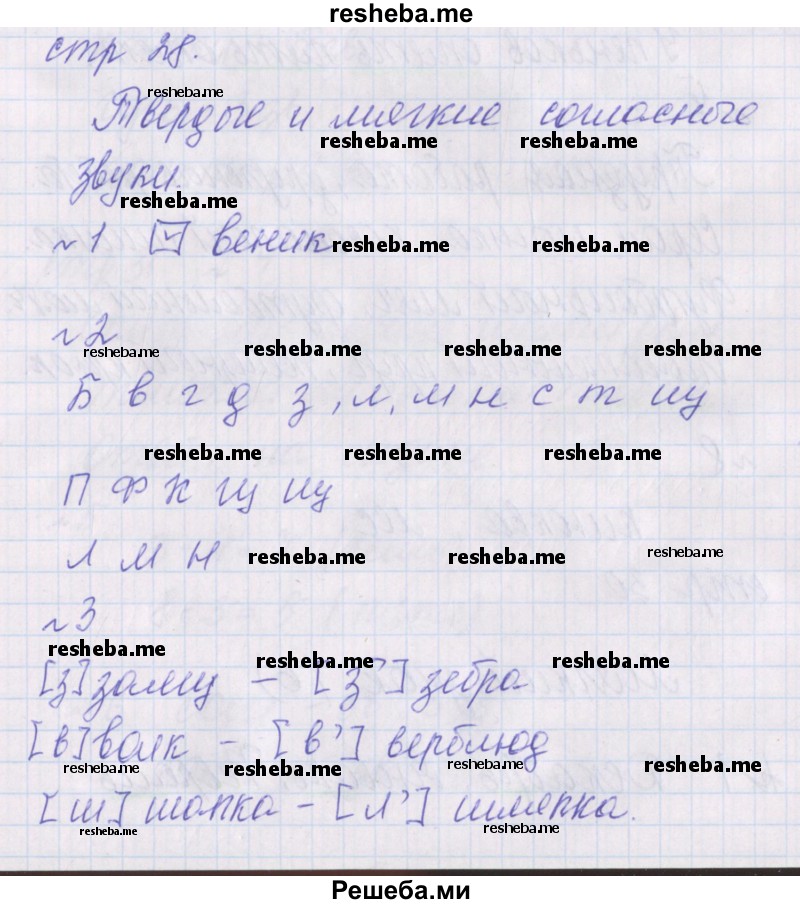 resheba.me
стр 28.
resheba.me
Твердые и мягкие согласные
resheba.me resheba.me
звуки.
resheba.me
№1 [✓] веник resheba.me resheba.me
№2
resheba.me resheba.me resheba.me resheba.me
Б в г д з, л, м н с т щ
resheba.me resheba.me resheba.me
П Ф К щ
Л М Н resheba.me resheba.me resheba.me
№3
resheba.me resheba.me resheba.me
[з] – [з’] зебра
[в] волк – [в’] верблюд
resheba.me resheba.me resheba.me resheba.me
[ш] шапка – [л’] шляпка.
resheba.me resheba.me
Решеба.ми